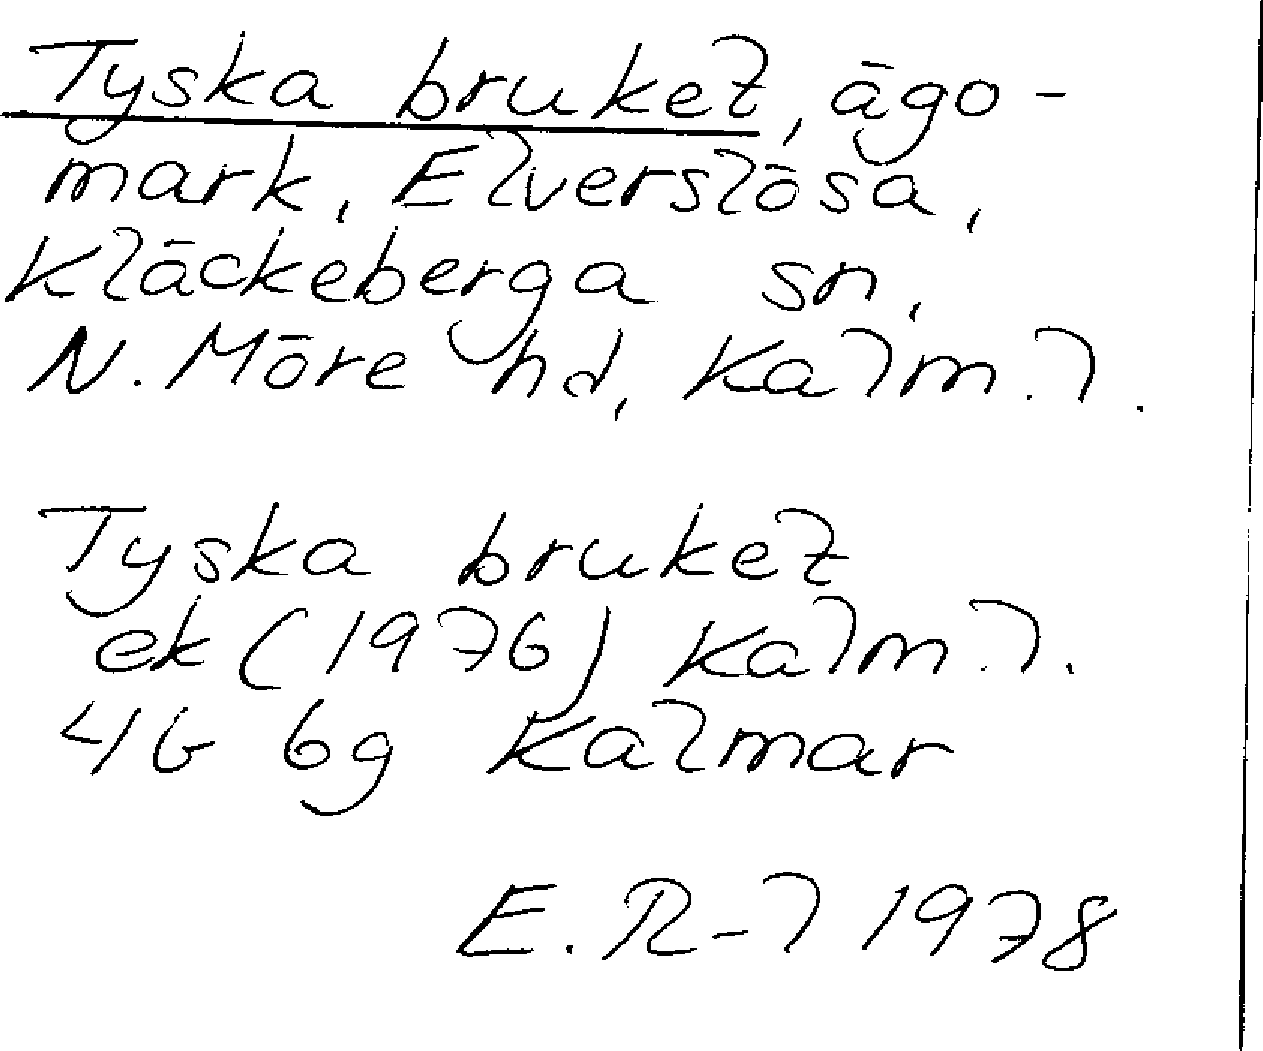 Tyska bruket, ägo-
mark, Elverslösa,
Kläckeberga sn,
N. Möre hd, Kalm. l.
Tyska bruket
ek (1976) Kalm. l.
4G 6g Kalmar
E. R-l 1978